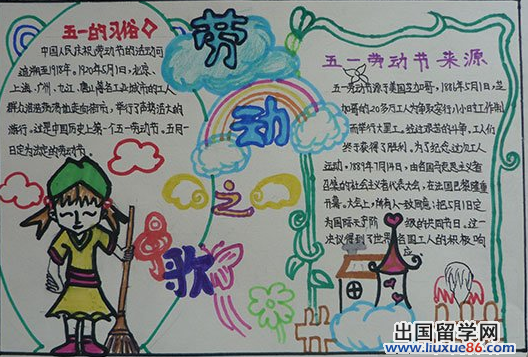 五一的习俗
中国人民庆祝劳动节的活动可
追溯至1918年。1920年5月1日,北京、
上海、广州、九江、唐山等各工业城市的工人
群众浩浩荡荡地走向街市,举行了声势浩大的
游行。这是中国历史上第一个五一劳动节。五月一
日定为法定的劳动节。
劳
动
之
歌
五一劳动节来源
五一劳动节源于美国芝加哥,1886年5月1日,芝
加哥的20多万工人为争取实行八小时工作制
而举行大罢工。经过艰苦的斗争,工人们
终于获得了胜利。为了纪念这次工人
运动,1889年7月14日,由各国马克思主义者
召集的社会主义者代表大会,在法国巴黎隆重
开幕。大会上,所有人一致同意:把5月1日定
为国际无产阶级的共同节日。这一
决议得到了世界各国工人的积极响
应。
出国留学网
www.liuxue86.com